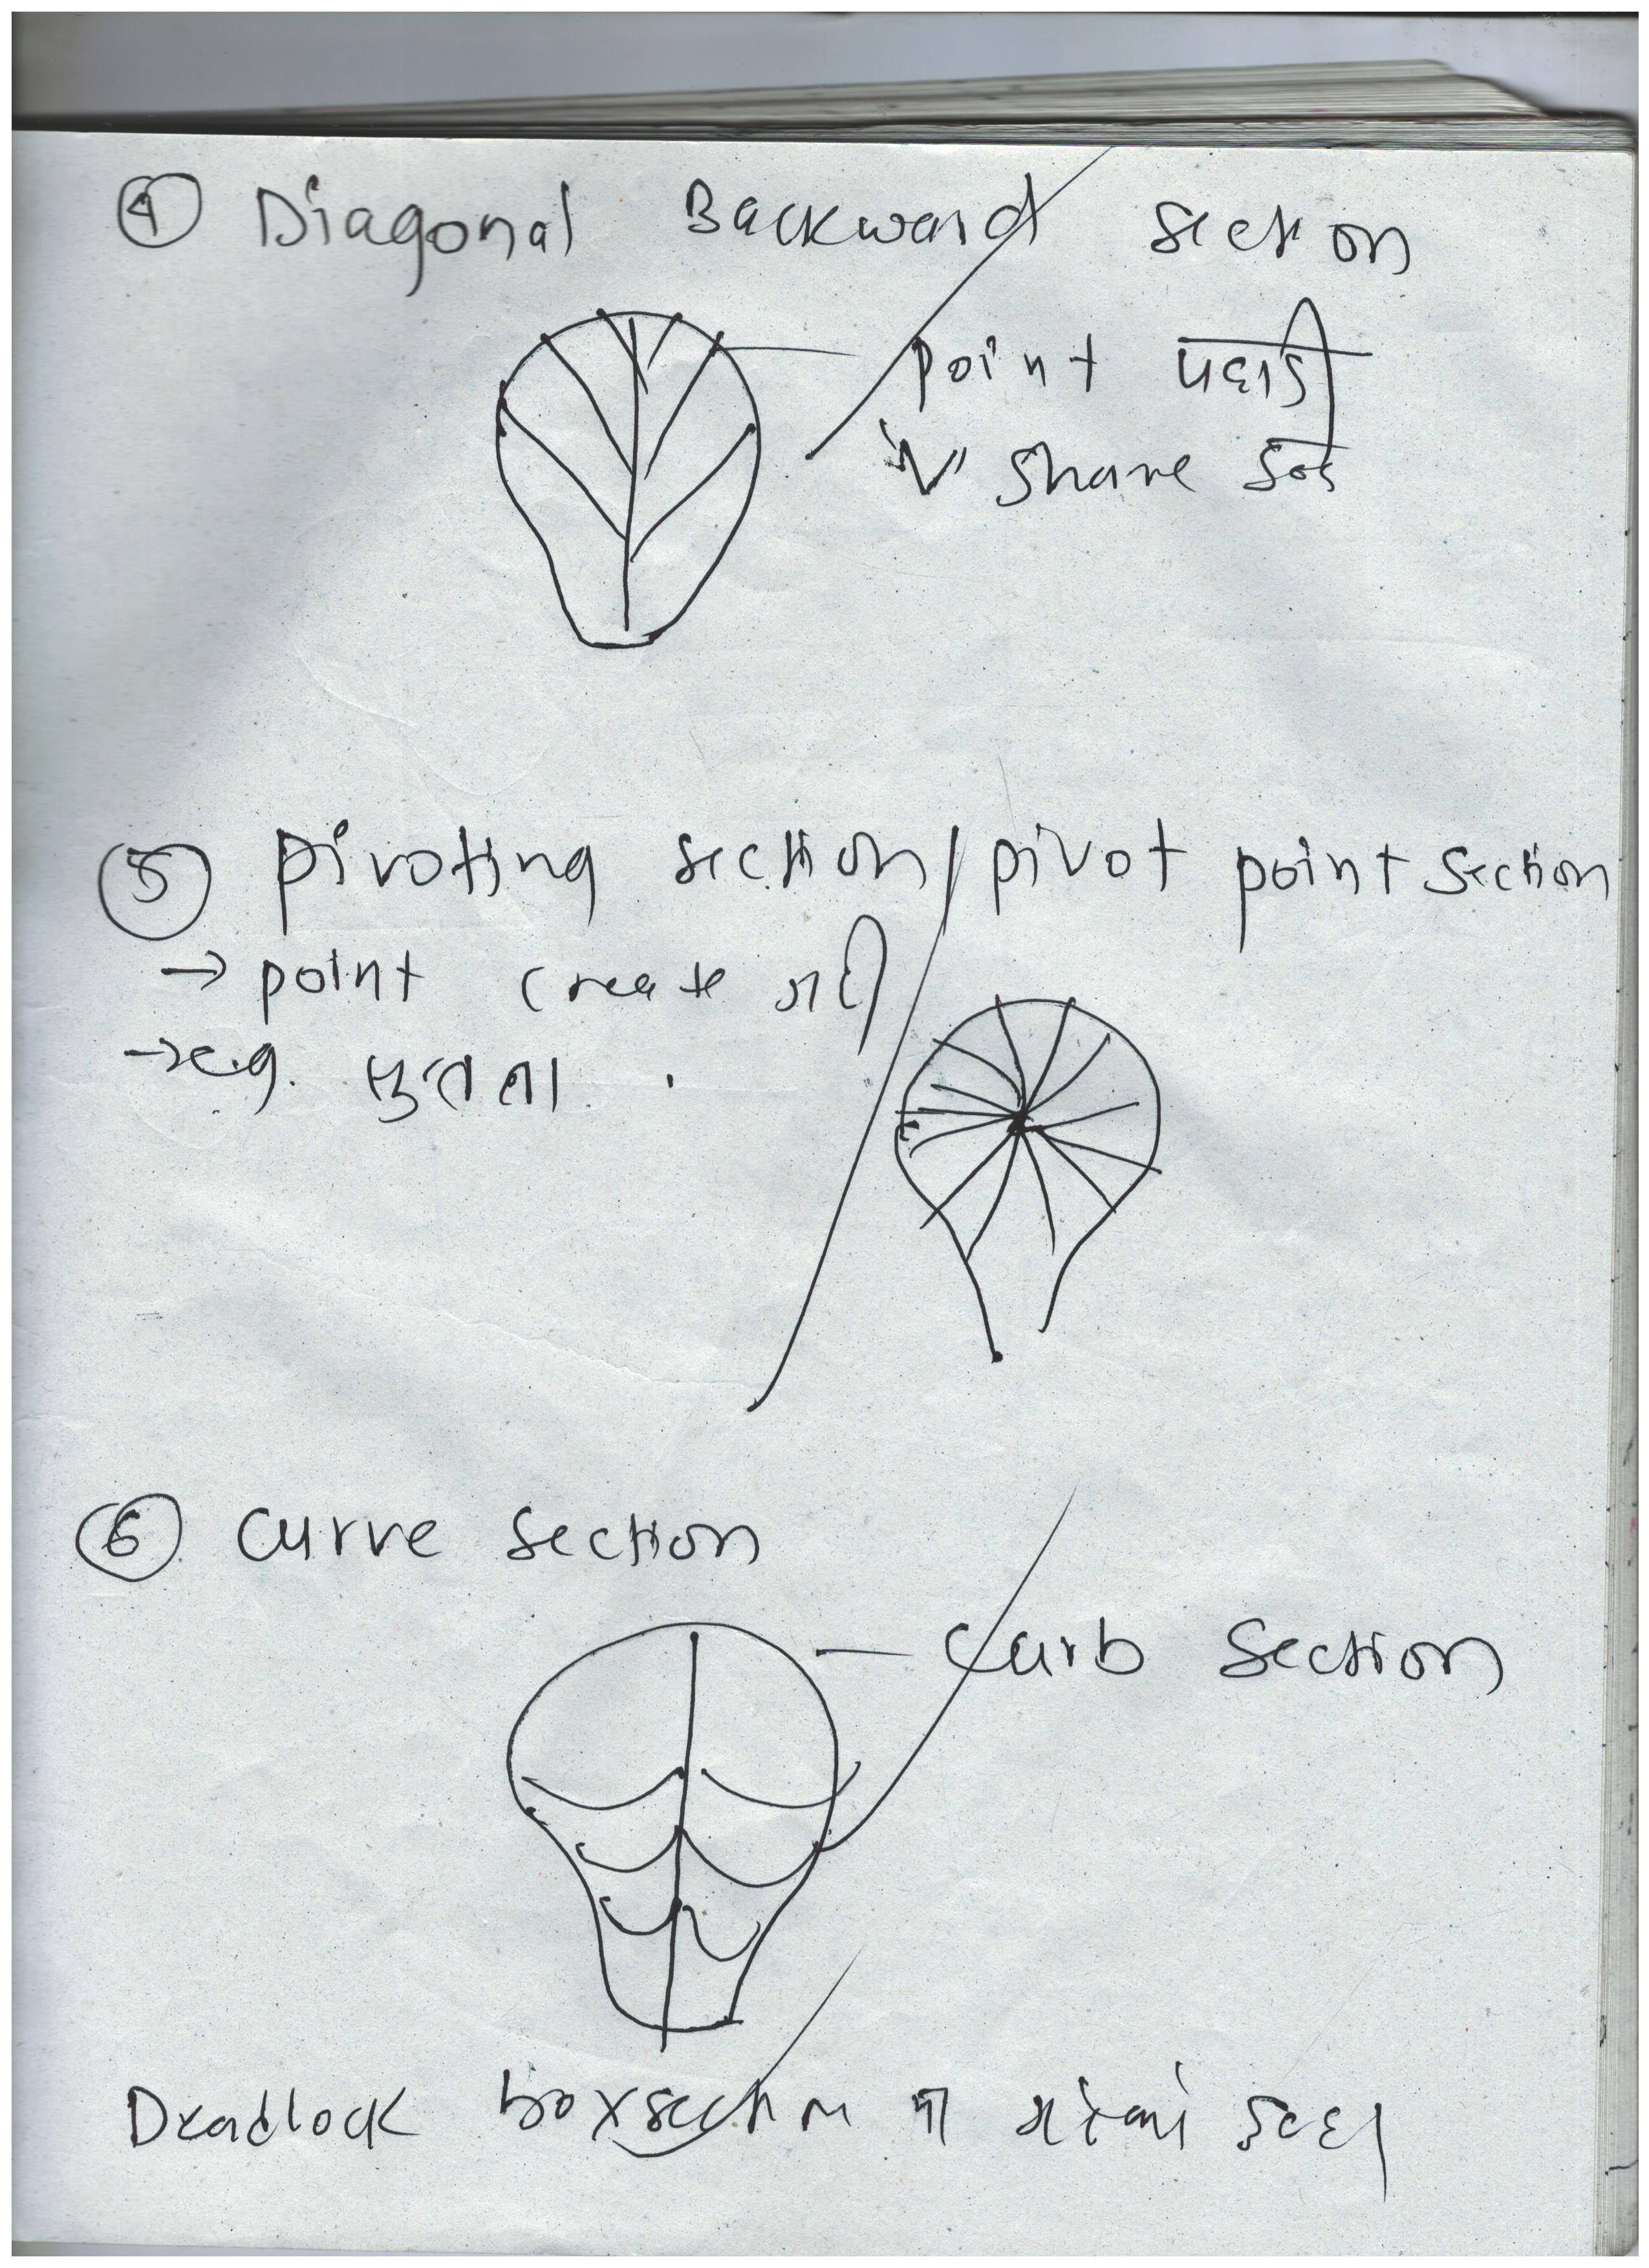 ④ Diagonal Backward Section
point पछाडी
'V' share
⑤ pivoting section/pivot point section
→ point create गर्ने
→ e.g.
⑥ curve section
curb section
Deadlock boxsection मा